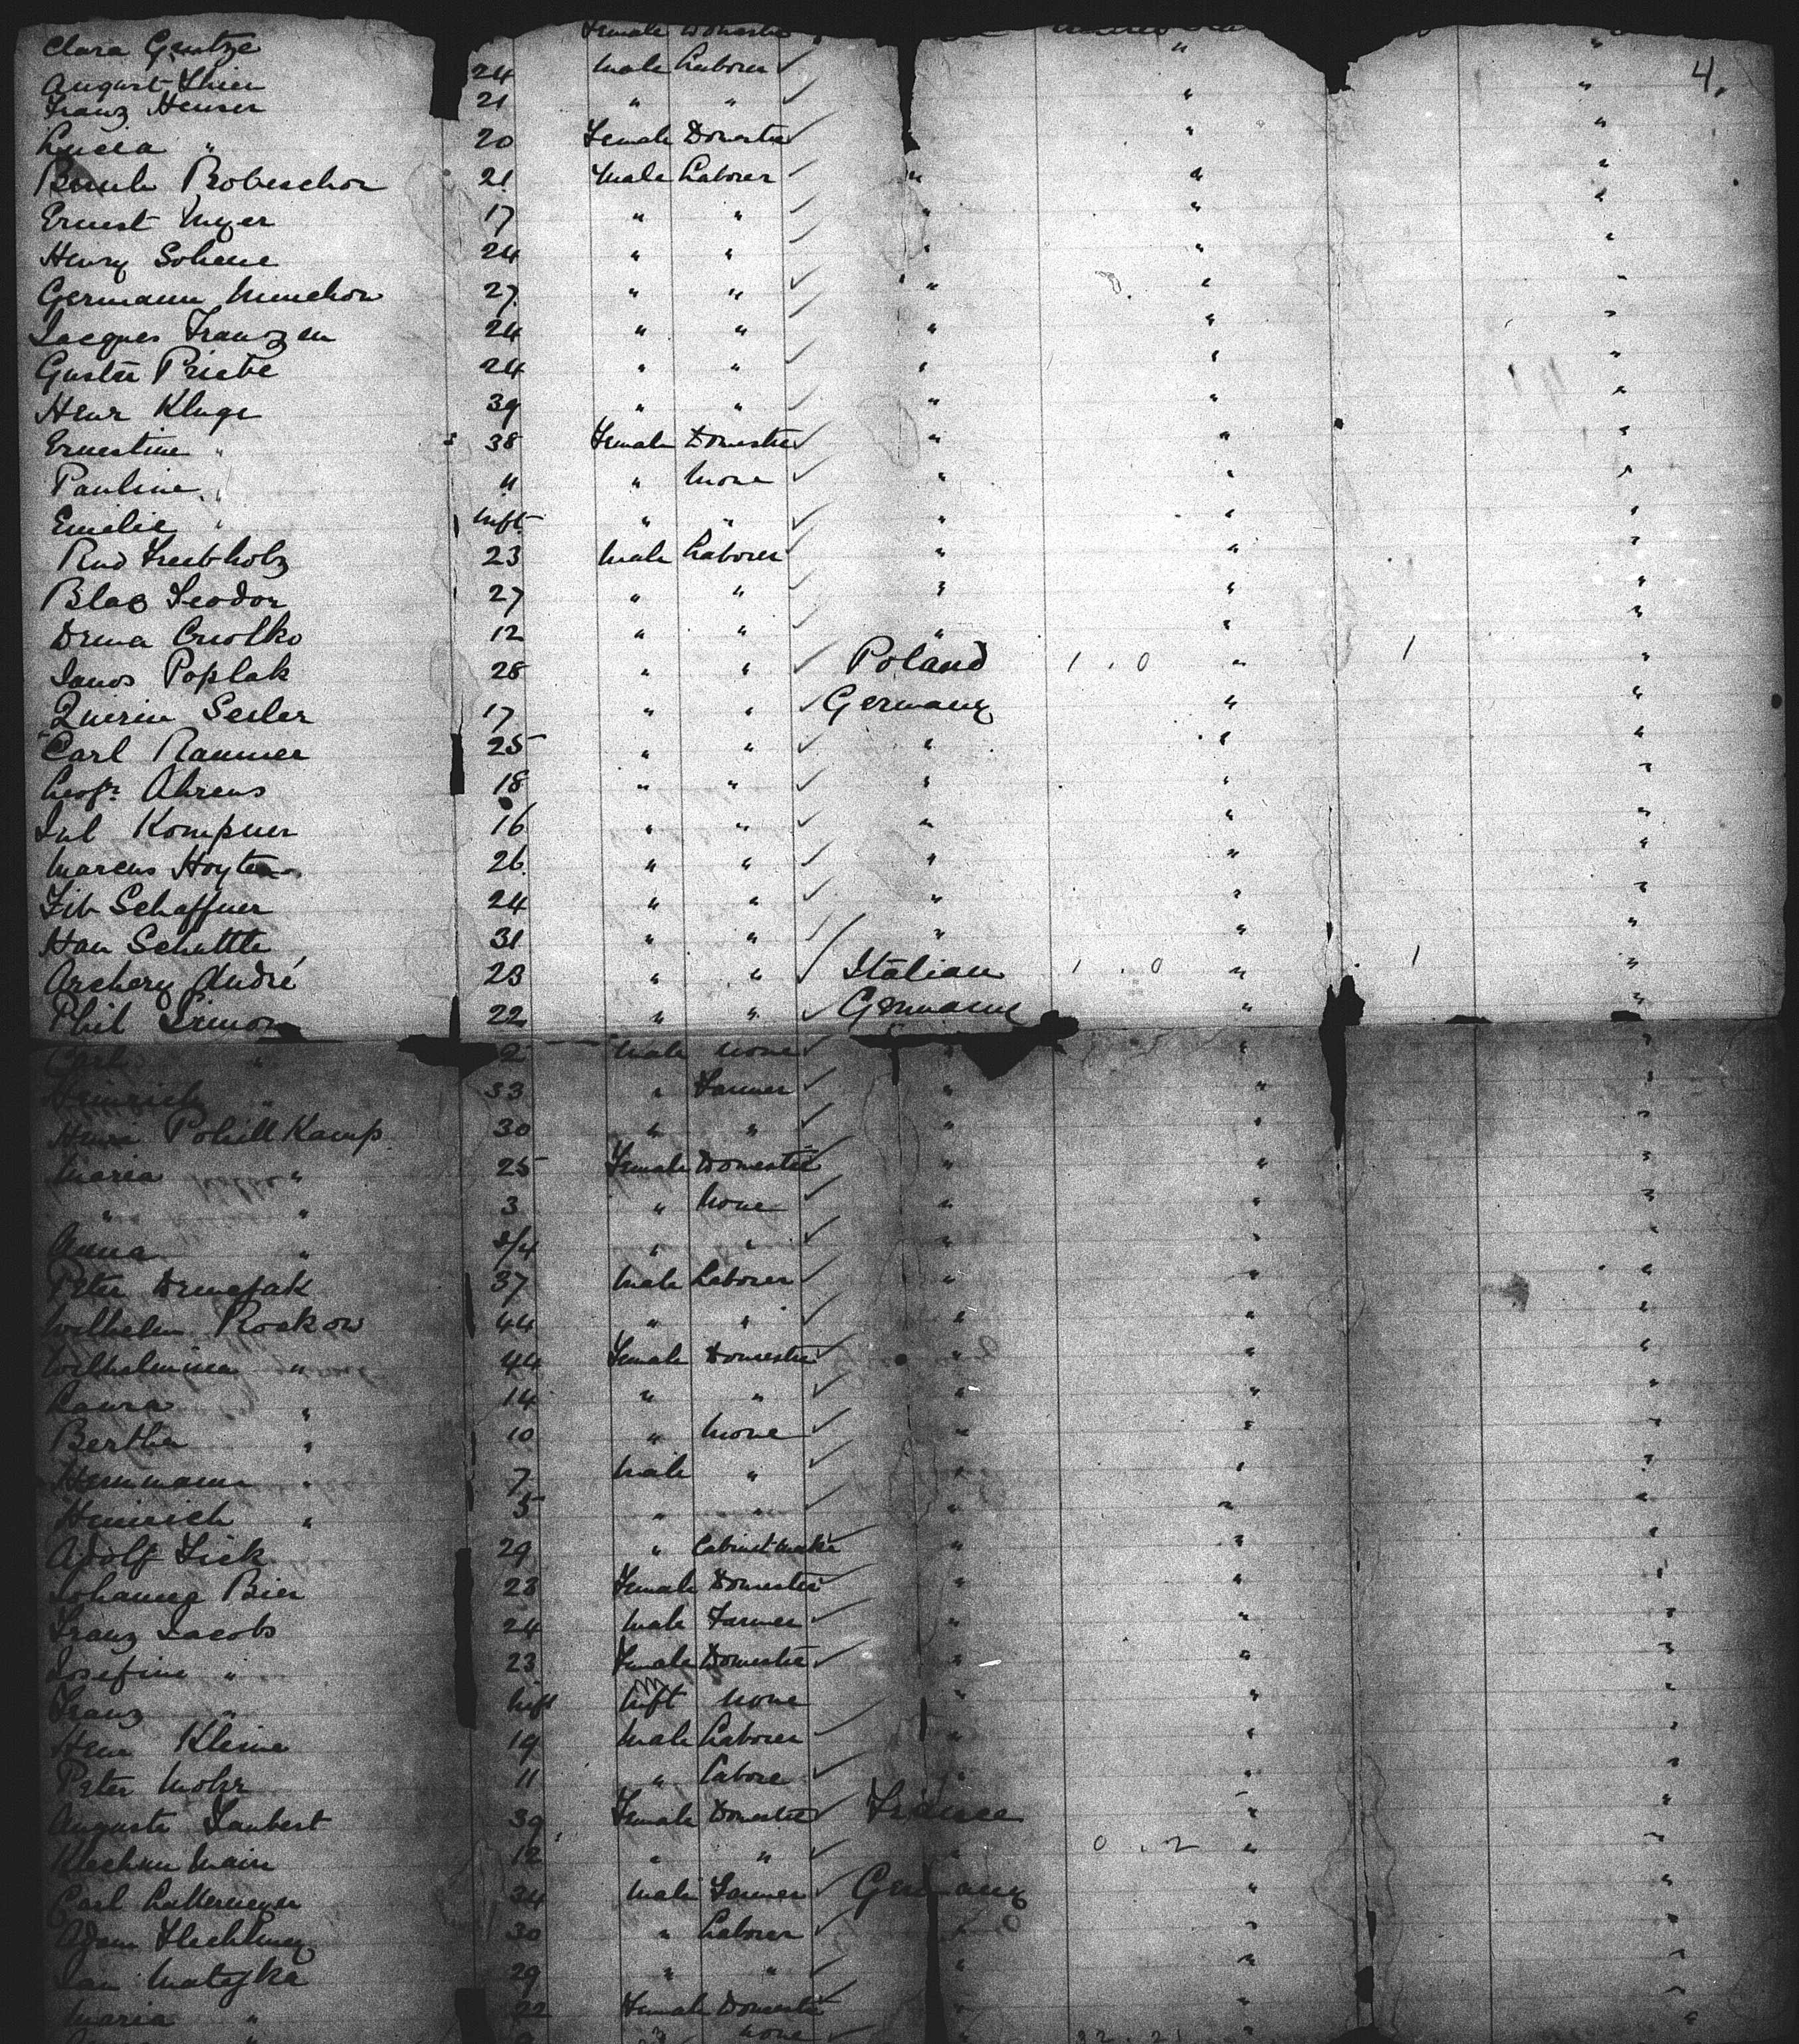 Clara Gentze Female Domestic
August Thien 24 Male Laborer ✓ " " 4.
Franz Heuser 21 " " ✓ " "
Lucia " 20 Female Domestic ✓ " "
Robeschor 21 Male Laborer ✓ " " "
Ernest Myer 17 " " ✓ " " "
Henry Sohene 24 " " ✓ " " "
Germann Munchow 27 " " ✓ " " "
Jacques Franzen 24 " " ✓ " " "
Gustu Priebe 24 " " ✓ " " "
Henr Kluge 39 " " ✓ " " "
Ernestine " 38 Female Domestic ✓ " " "
Pauline " 11 " None ✓ " " "
Emilie " Inft " " ✓ " " "
Rud Treubholz 23 Male Laborer ✓ " " "
Blas Teodor 27 " " ✓ " " "
Druna 12 " " ✓ " " "
Janos Poplak 28 " " ✓ Poland 1 . 0 " 1 "
Quirin Seiler 17 " " ✓ Germany " "
Carl Rammer 25 " " ✓ " " "
Leop. Ahrens 18 " " ✓ " " "
Jul Kompner 16 " " ✓ " " "
Marcus Hoyten 26 " " ✓ " " "
Fib Schaffner 24 " " ✓ " " "
Han Schuttle 31 " " ✓ " " "
Archery André 23 " " ✓ Italian 1 . 0 " 1 "
Phil Simon 22 " " ✓ Germany " "
Carl " 2 Male None ✓ " " "
Heinrich " 33 " Farmer ✓ " " "
Henri Pohill Kamp 30 " " ✓ " " "
Maria " 25 Female Domestic ✓ " " "
" " 3 " None ✓ " " "
Anna " 3/4 " " ✓ " " "
Peter Drmejak 37 Male Laborer ✓ " " "
Wilhelm Rockow 44 " " ✓ " " "
Wilhelmina " 44 Female Domestic ✓ " " "
Laura " 14 " " ✓ " " "
Bertha " 10 " None ✓ " " "
Hermann " 7 Male " ✓ " " "
Heinrich " 5 " " ✓ " " "
Adolf Fick 29 " Cabinet maker ✓ " " "
Johanna Bier 23 Female Domestic ✓ " " "
Franz Jacobs 24 Male Farmer ✓ " " "
Josefine " 23 Female Domestic ✓ " " "
Franz " Inft Inft None " " "
Henr Kleine 19 Male Laborer ✓ " " "
Peter Mohr 11 " Labore ✓ " " "
Auguste Laubert 39 Female Domestic ✓ France " "
Main 12 " " ✓ " 0 . 2 " "
Carl 34 Male Farmer ✓ Germany " "
Adam 30 " Laborer ✓ " " "
Jan Matejka 29 " " ✓ " " "
Maria " 22 Female Domestic " " "
None ✓